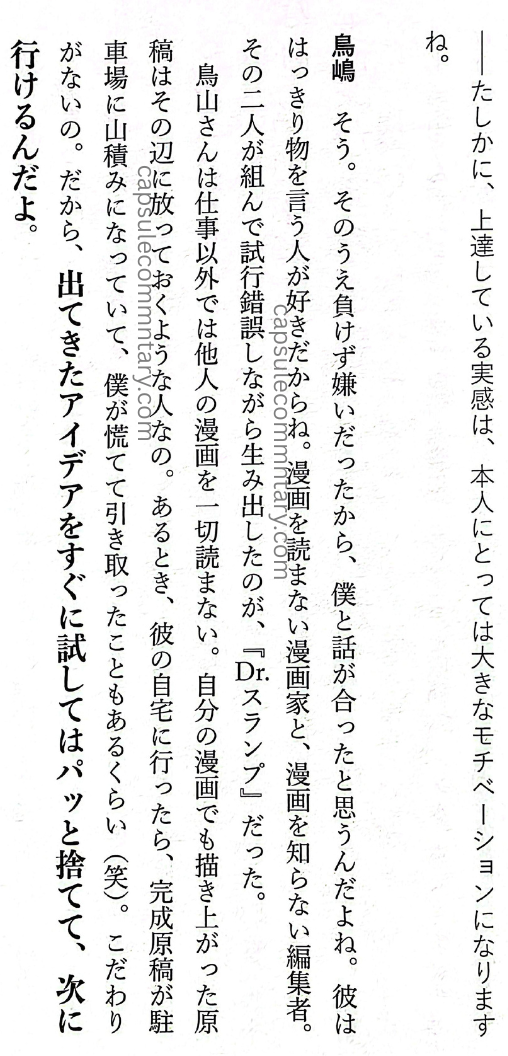 ――たしかに、上達している実感は、本人にとっては大きなモチベーションになります
ね。
鳥嶋　そう。そのうえ負けず嫌いだったから、僕と話が合ったと思うんだよね。彼は
はっきり物を言う人が好きだからね。漫画を読まない漫画家と、漫画を知らない編集者。
その二人が組んで試行錯誤しながら生み出したのが、『Dr.スランプ』だった。
　鳥山さんは仕事以外では他人の漫画を一切読まない。自分の漫画でも描き上がった原
稿はその辺に放っておくような人なの。あるとき、彼の自宅に行ったら、完成原稿が駐
車場に山積みになっていて、僕が慌てて引き取ったこともあるくらい（笑）。こだわり
がないの。だから、出てきたアイデアをすぐに試してはパッと捨てて、次に
行けるんだよ。
capsulecommntary.com
capsulecommntary.com